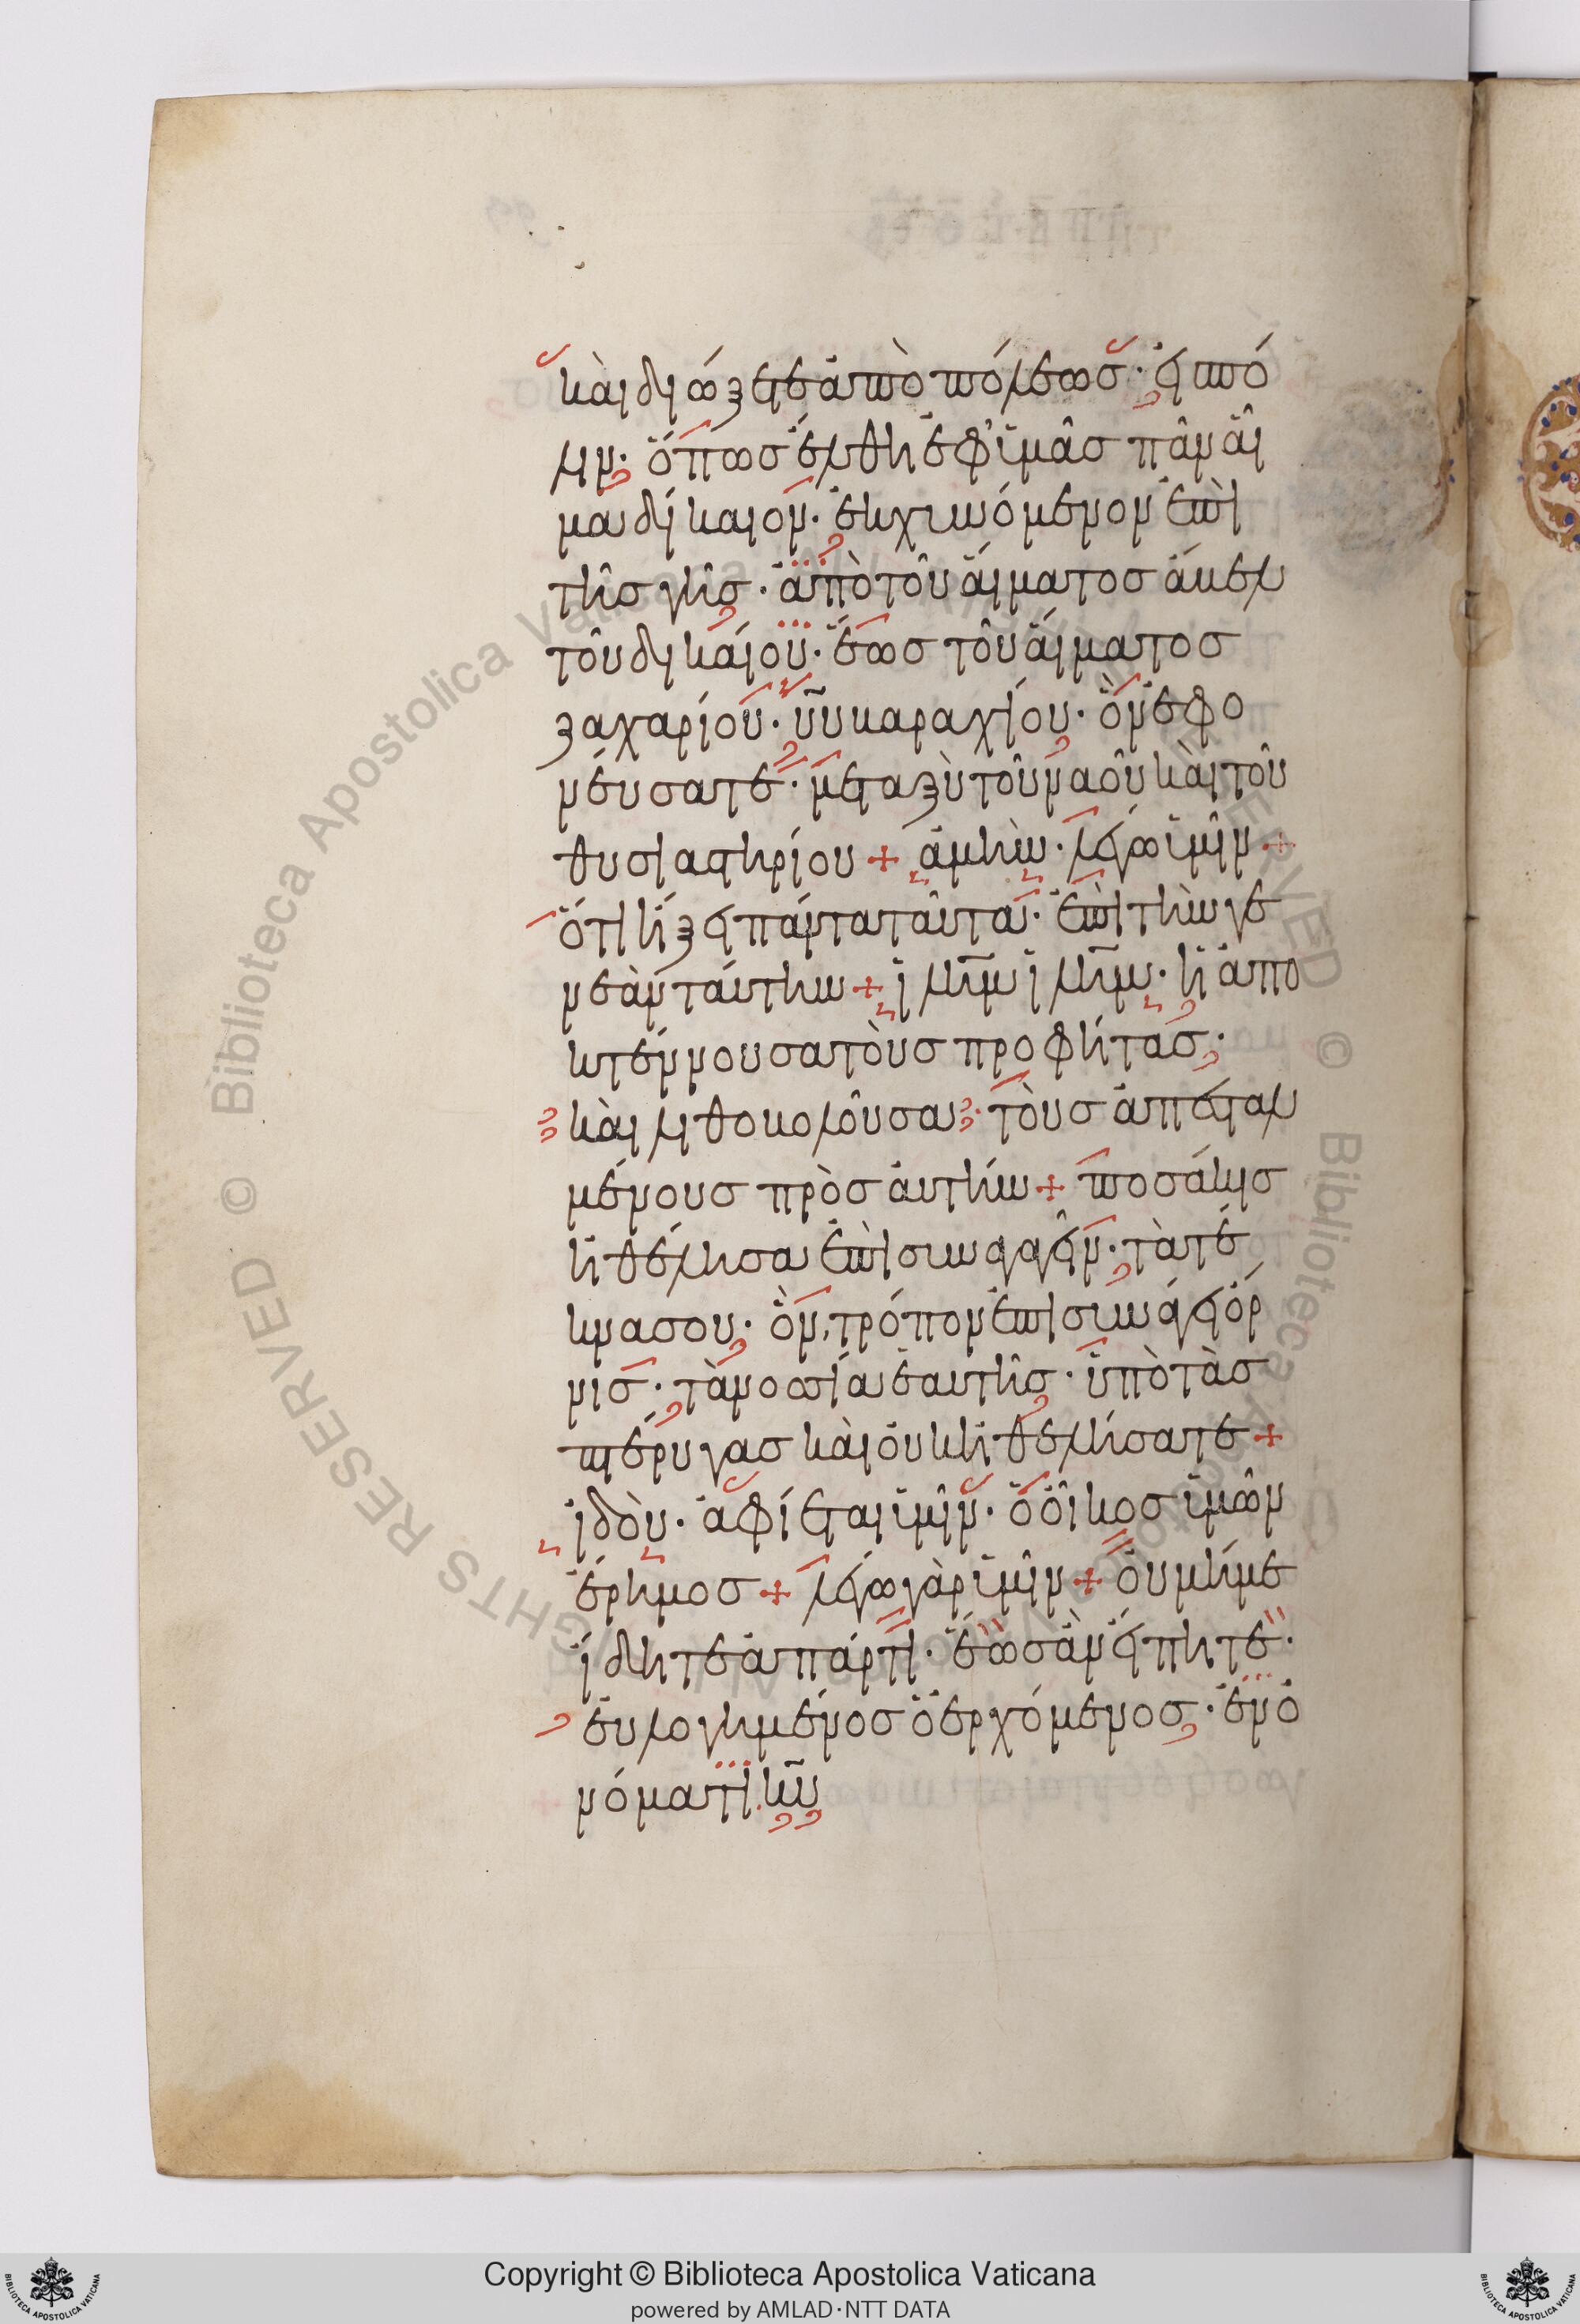 κὰι διώξετε ἀπὸ πόλεωσ· εἰσ πό
λιν· ὅπωσ ἔλθη ἐφ' ϋμᾶσ πᾶν ἅι
μα δίκαιον· ἐκχυνόμενον ἐπὶ
τῆσ γῆσ· ἀπὸ τοῦ ἅιματοσ ἄβελ
τοῦ δικάιου· ἕωσ τοῦ ἅιματοσ
ζαχαρίου· ϋῦ βαραχίου· ὃν ἐφο
νέυσατε· μεταξὺ τοῦ ναοῦ κὰι τοῦ
θυσιαστηρίου + ἀμὴν· λέγω ϋμῖν +
ὅτι ἥξει πάντα ταῦτα· ἐπὶ τὴν γε
νεὰν τάυτην + ϊλῆμ ϊλῆμ· ἡ ἀπο
κτέννουσα τὸυσ προφήτασ·
κὰι λιθοβολοῦσα· τὸυσ ἀπεσταλ
μένουσ πρὸσ ἀυτήν + ποσάκισ
ἠθέλησα ἐπισυναγαγεῖν· τὰ τέ
κνα σου· ὃν τρόπον ἐπισυνάγει ὄρ
νισ· τὰ νοσσία ἑαυτῆσ· ϋπὸ τὰσ
πτέρυγασ κὰι ὀυκ ἠθελήσατε +
ϊδὸυ· ἀφίεται ϋμῖν· ὁ ὄικοσ ϋμῶν
ἔρημοσ + λέγω γὰρ ϋμῖν + ὀυ μή με
ΐδητε ἀπάρτι· ἕωσ ἂν ἔιπητε·
ἐυλογημένοσ ὁ ἐρχόμενοσ· ἐν ὀ
νόματι κ̅υ̅
Copyright © Biblioteca Apostolica Vaticana
powered by AMLAD·NTT DATA